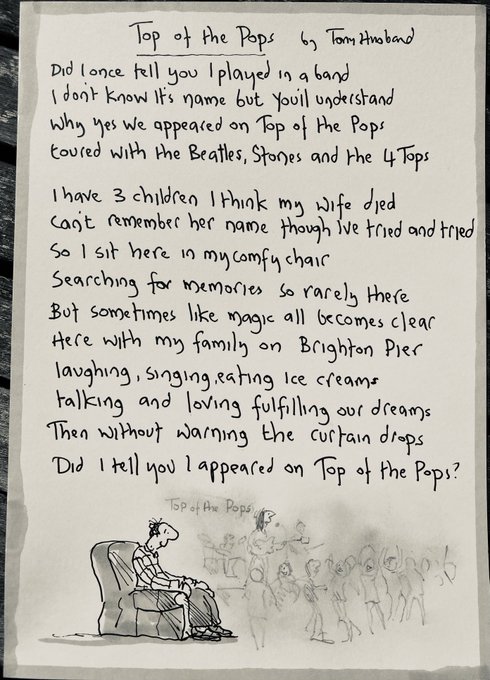 Top of the Pops by Tony Husband
Did I once tell you I played in a band
I don't know It's name but you'll understand
Why yes we appeared on Top of the Pops
toured with the Beatles, Stones and the 4 Tops
I have 3 children I think my wife died
Can't remember her name though I've tried and tried
So I sit here in my comfy chair
Searching for memories so rarely there
But sometimes like magic all becomes clear
Here with my family on Brighton Pier
laughing, singing, eating ice creams
talking and loving fulfilling our dreams
Then without warning the curtain drops
Did I tell you I appeared on Top of the Pops?
Top of the Pops